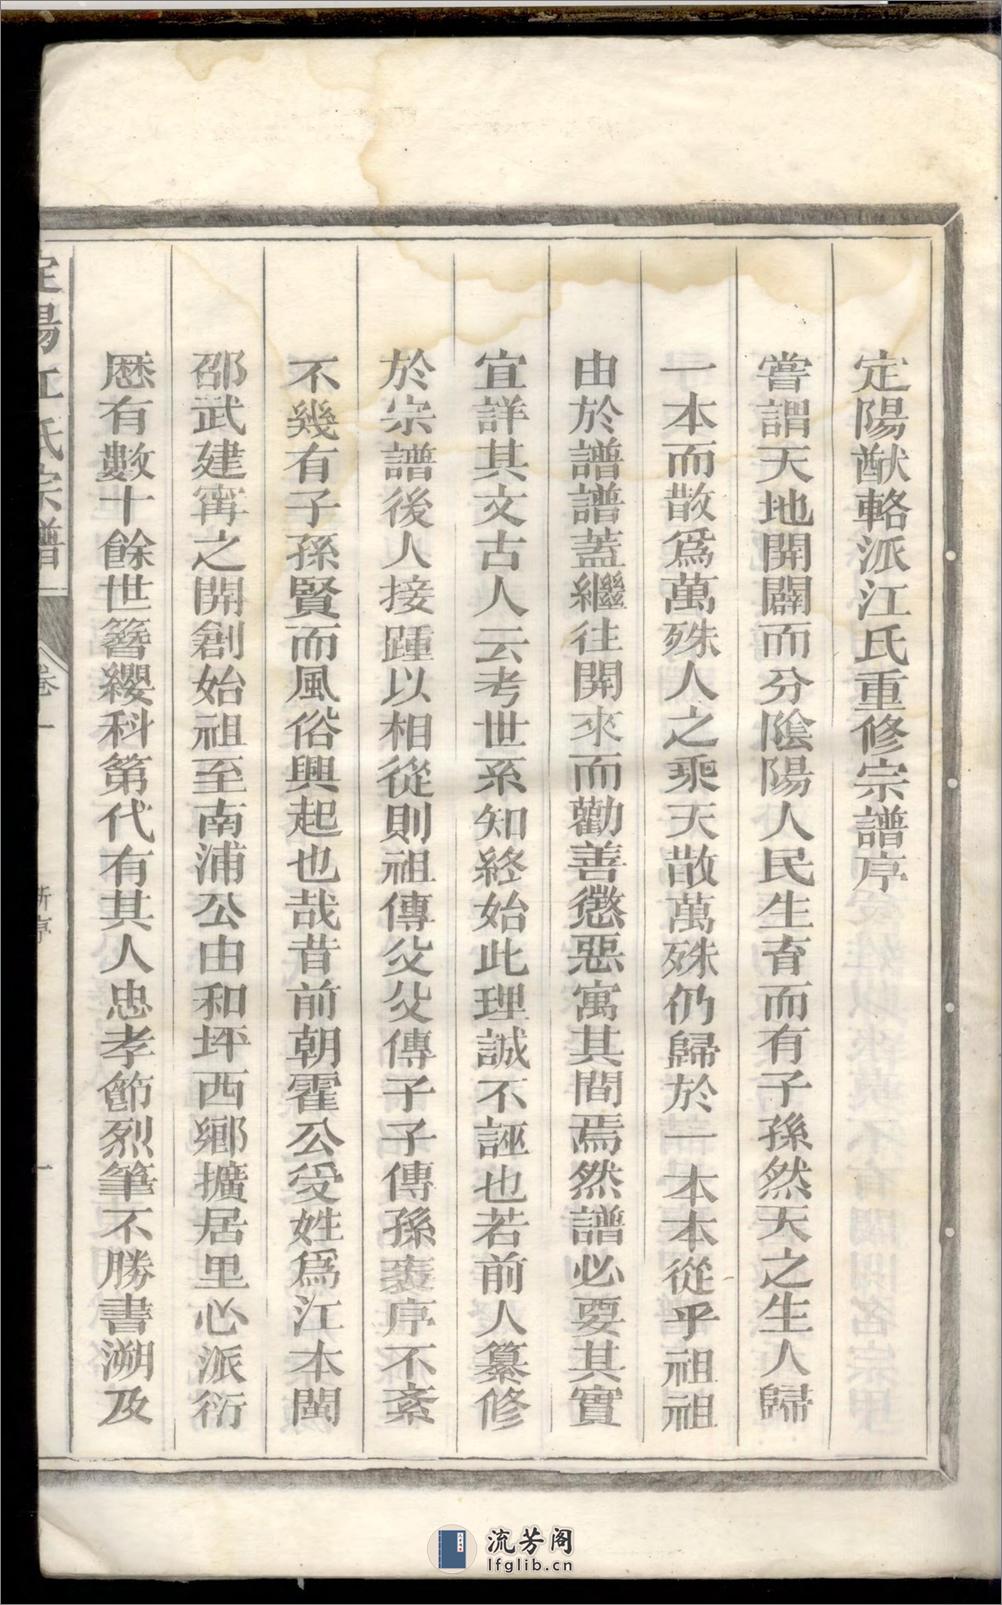 定陽猷輅派江氏重修宗譜序
嘗謂天地開闢而分陰陽人民生育而有子孫然天之生人歸
一本而散爲萬殊人之乘天散萬殊仍歸於一本本從乎祖祖
由於譜譜蓋繼往開來而勸善懲惡寓其間焉然譜必要其實
宜詳其文古人云考世系知終始此理誠不誣也若前人纂修
於宗譜後人接踵以相從則祖傳父父傳子子傳孫序不紊
不幾有子孫賢而風俗興起也哉昔前朝霍公受姓爲江本閩
邵武建寗之開創始祖至南浦公由和坪西鄉擴居里心派衍
歷有數十餘世簪纓科第代有其人忠孝節烈筆不勝書溯及
定陽江氏宗譜
卷一
新序
一
流芳阁
lfglib.cn